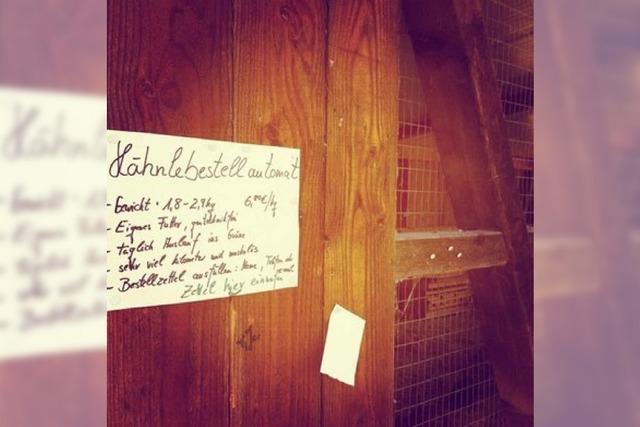 Hähnlebestellautomat
- Gewicht · 1,8-2,9kg 6,00€/kg
- Eigenes Futter,
- täglich Auslauf ins Grüne
- sehr viel und
- Bestellzettel ausfüllen: Name, Telefon
Zettel hier einwerfen